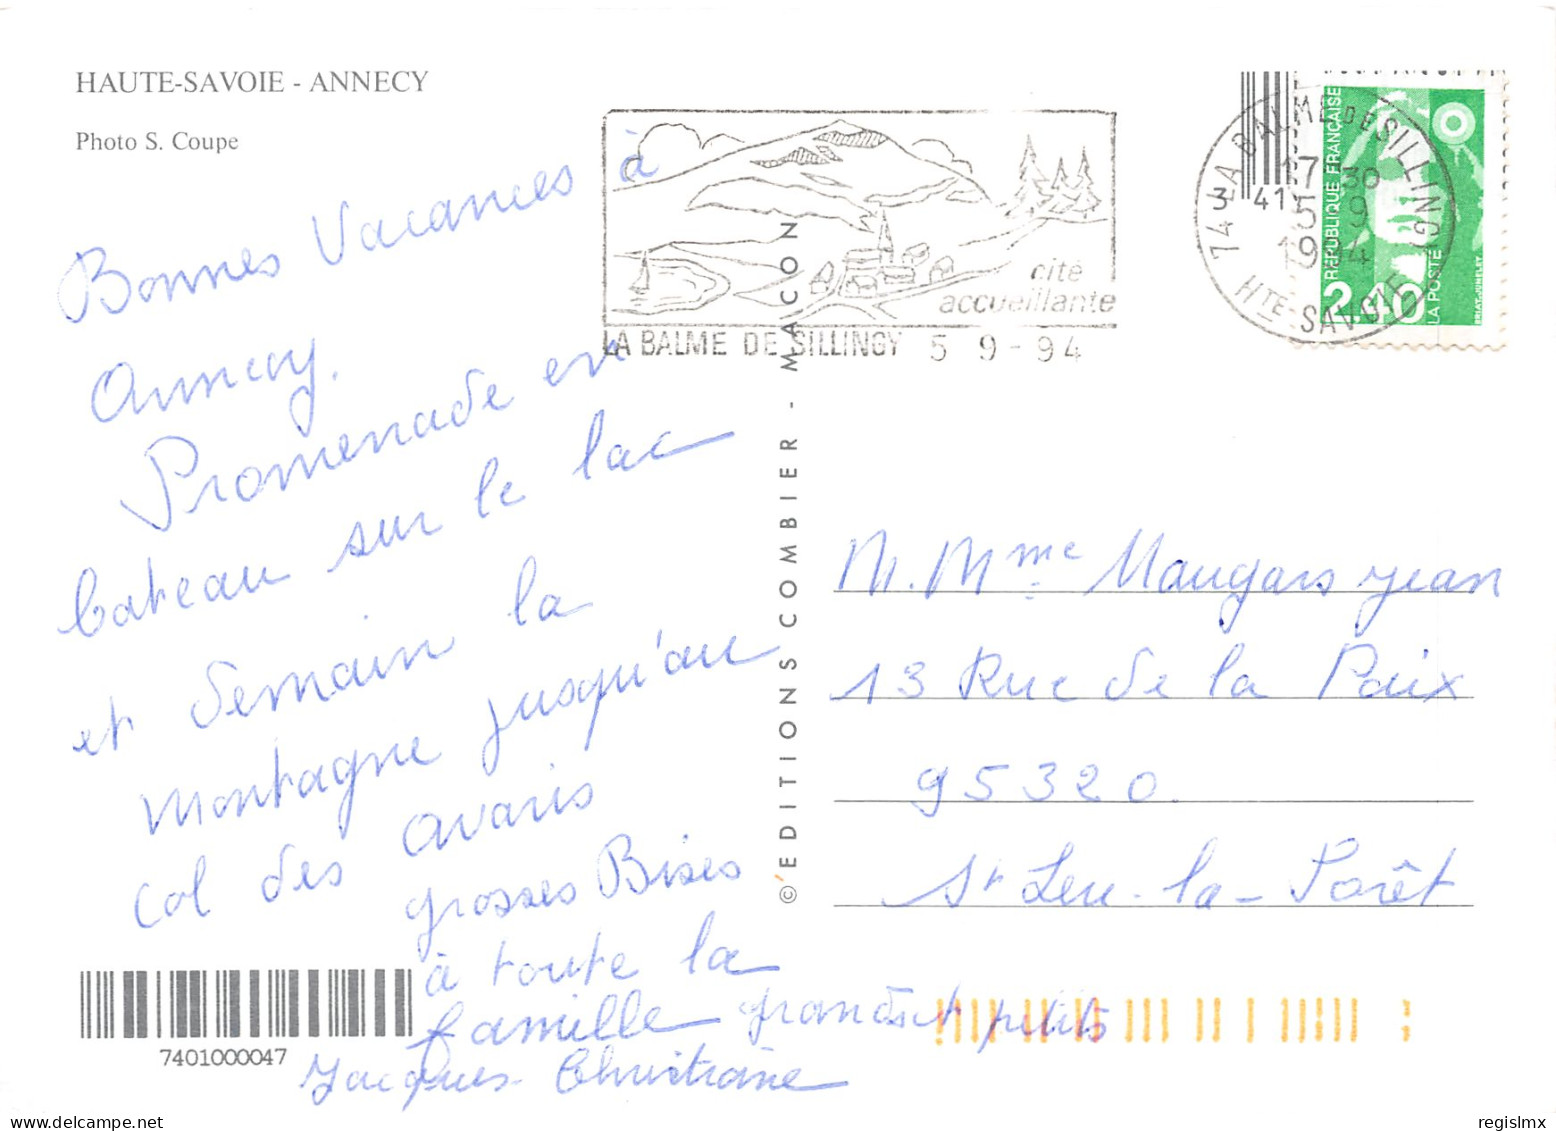 HAUTE-SAVOIE - ANNECY
Photo S. Coupe
Bonnes Vacances à
Annecy.
Promenade en
bateau sur le lac
et demain la
montagne jusqu'au
col des avaris
grosses Bises
à toute la
famille grands et petits
Jacques - Christiane
7401000047
©EDITIONS COMBIER - MACON
cité
accueillante
LA BALME DE SILLINGY 5 9 - 94
74 LA BALME DE SILLINGY
17 30
5 9
1994
HTE-SAVOIE
3 41
RÉPUBLIQUE FRANÇAISE
2,40
LA POSTE
BRIAT-JUMELET
M. Mme Maugars Jean
13 Rue de la Paix
95320.
St Leu-la-Forêt
regislmx